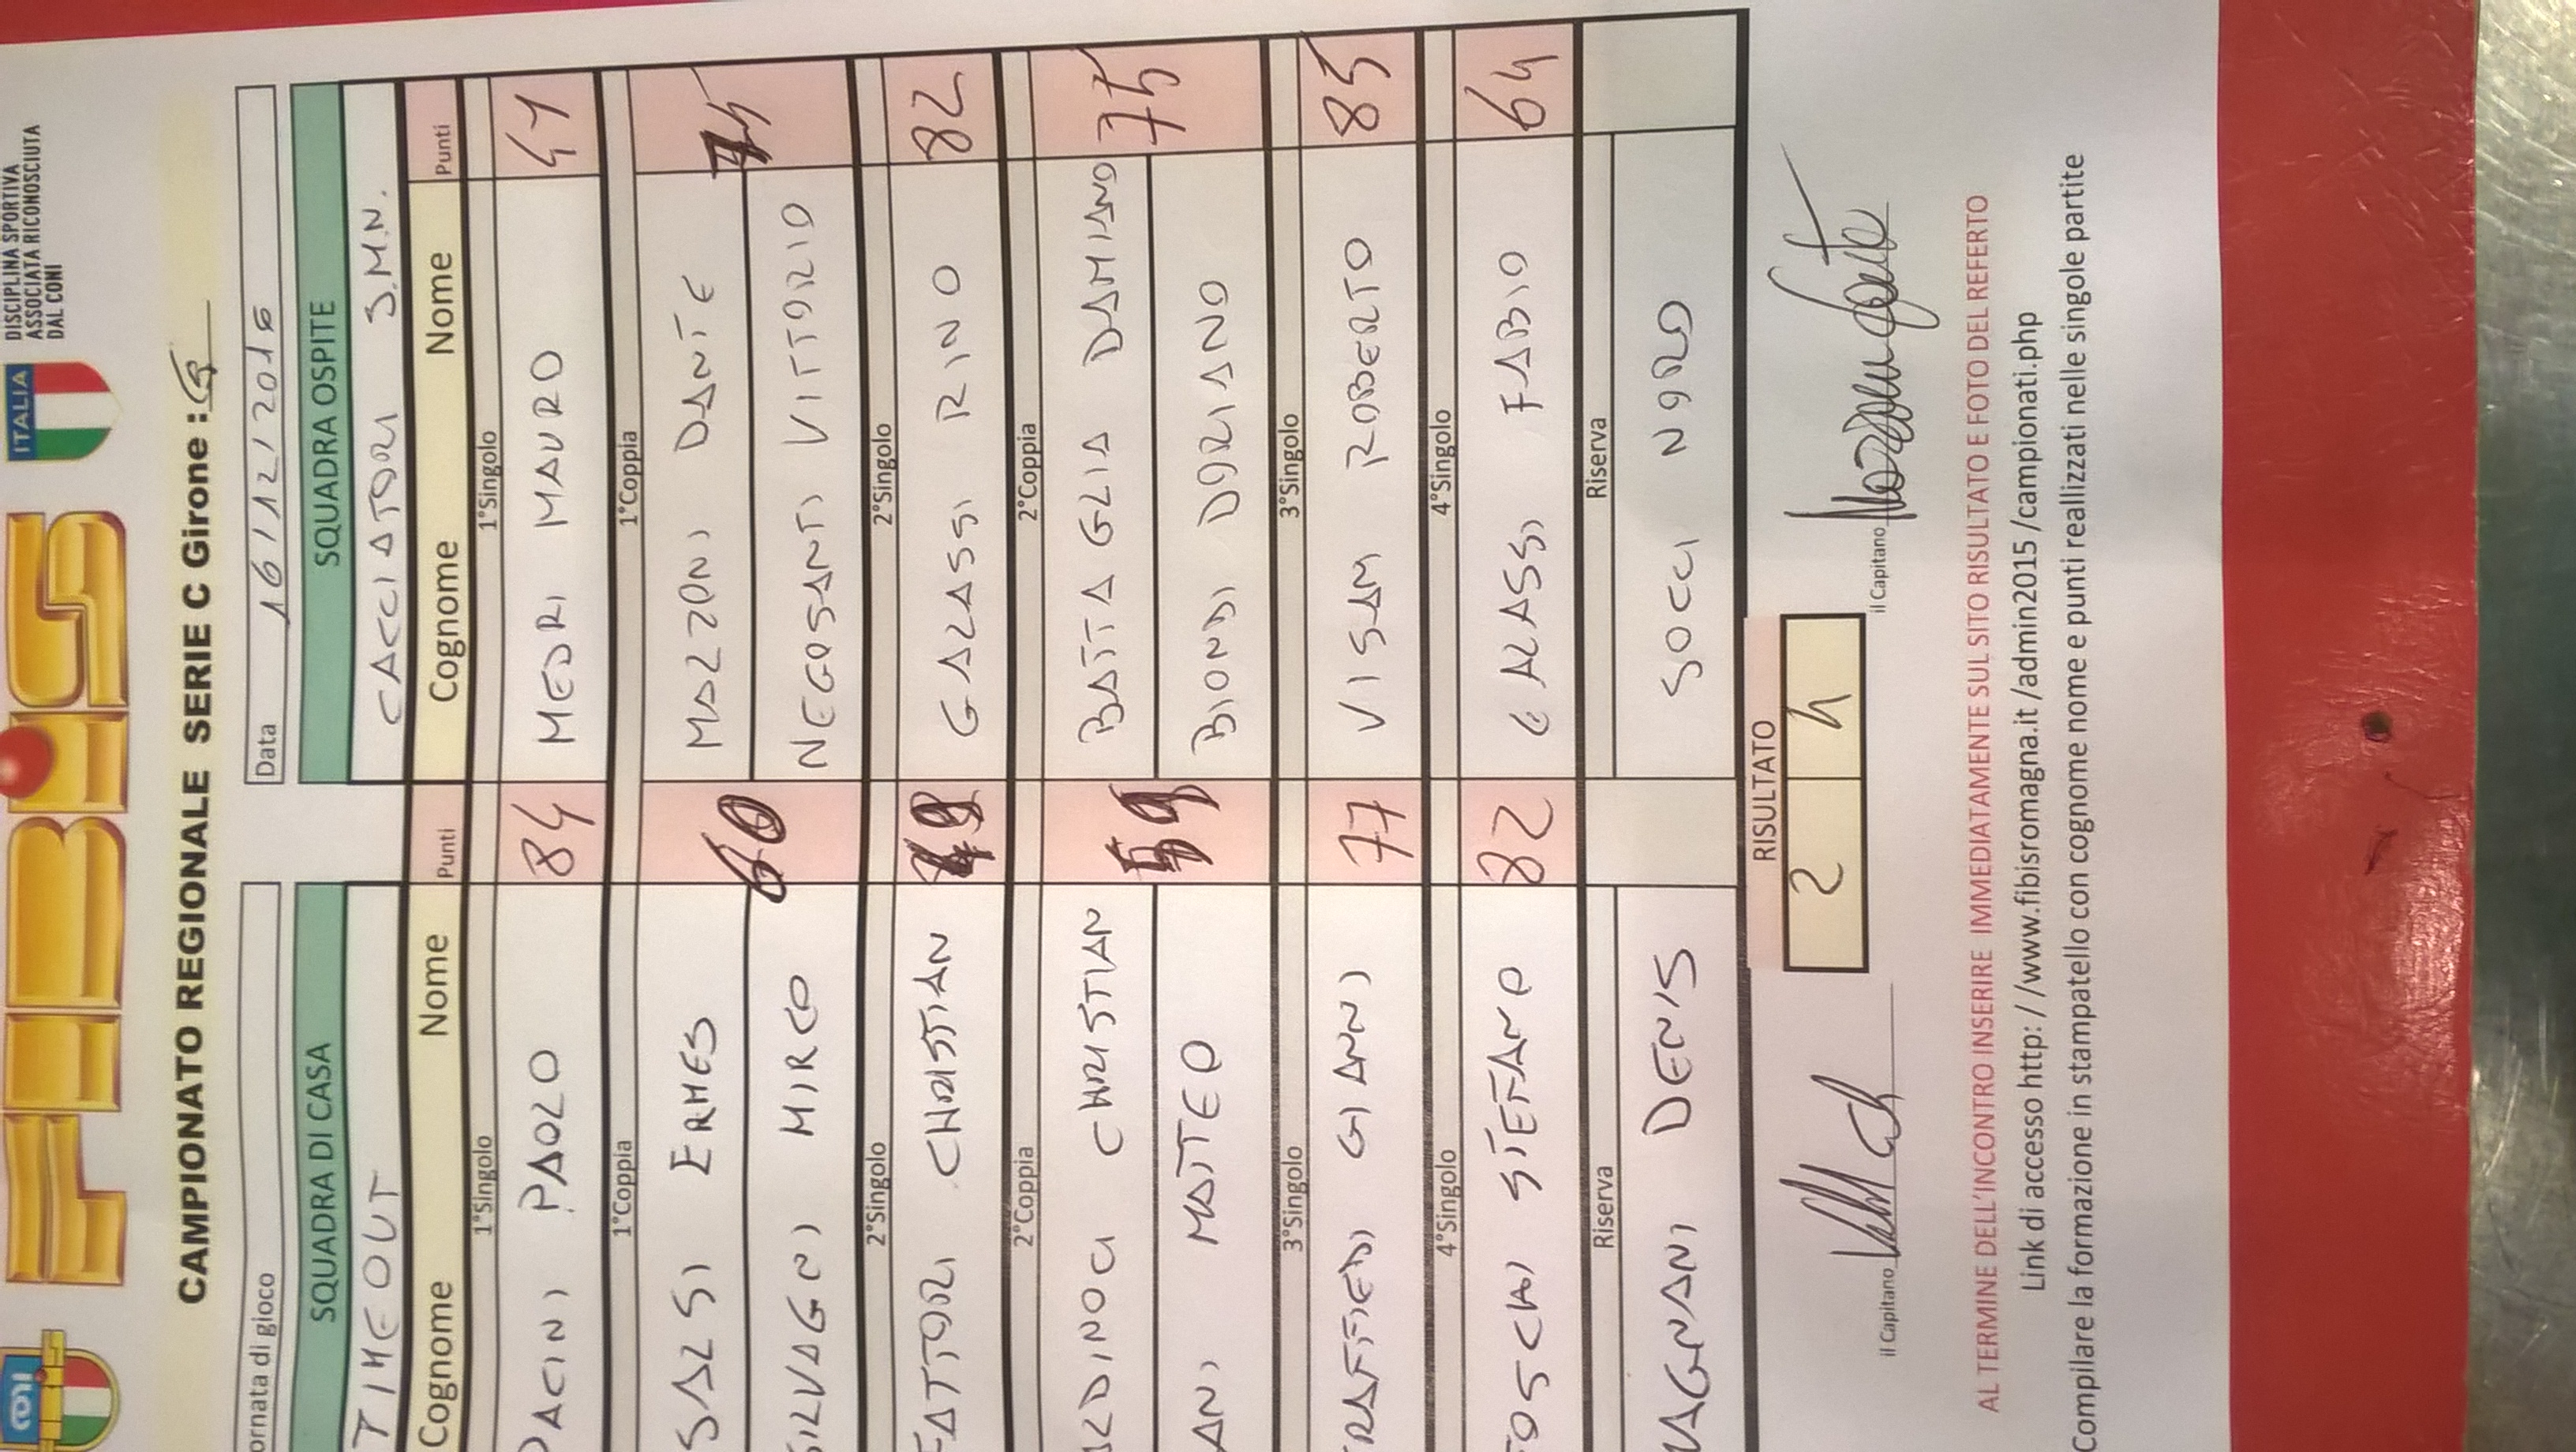 FIBiS
ITALIA
DISCIPLINA SPORTIVA
ASSOCIATA RICONOSCIUTA
DAL CONI
CAMPIONATO REGIONALE SERIE C Girone :
ornata di gioco
Data 16/12/2015
SQUADRA DI CASA SQUADRA OSPITE
TIMEOUT CACCIATORI S.M.N.
Cognome Nome Punti Cognome Nome Punti
1°Singolo 1°Singolo
PACINI PAOLO 84 MEDRI MAURO 41
1°Coppia 1°Coppia
SALSI ERMES 60 MAZZONI DANTE 75
SILVAGNI MIRCO NEGOSANTI VITTORIO
2°Singolo 2°Singolo
FATTORI CHRISTIAN GALASSI RINO 82
2°Coppia 2°Coppia
ALDINOCI CHRISTIAN 59 BATTAGLIA DAMIANO 75
ANI MATTEO BIONDI DORIANO
3°Singolo 3°Singolo
TRAFFIEDI GIANNI 77 VISANI ROBERTO 85
4°Singolo 4°Singolo
FOSCHI STEFANO 82 GALASSI FABIO 64
Riserva Riserva
VAGNANI DENIS SOCCI NORD
RISULTATO
2 4
il Capitano il Capitano
AL TERMINE DELL'INCONTRO INSERIRE IMMEDIATAMENTE SUL SITO RISULTATO E FOTO DEL REFERTO
Link di accesso http: / /www.fibisromagna.it /admin2015 /campionati.php
Compilare la formazione in stampatello con cognome nome e punti reallizzati nelle singole partite